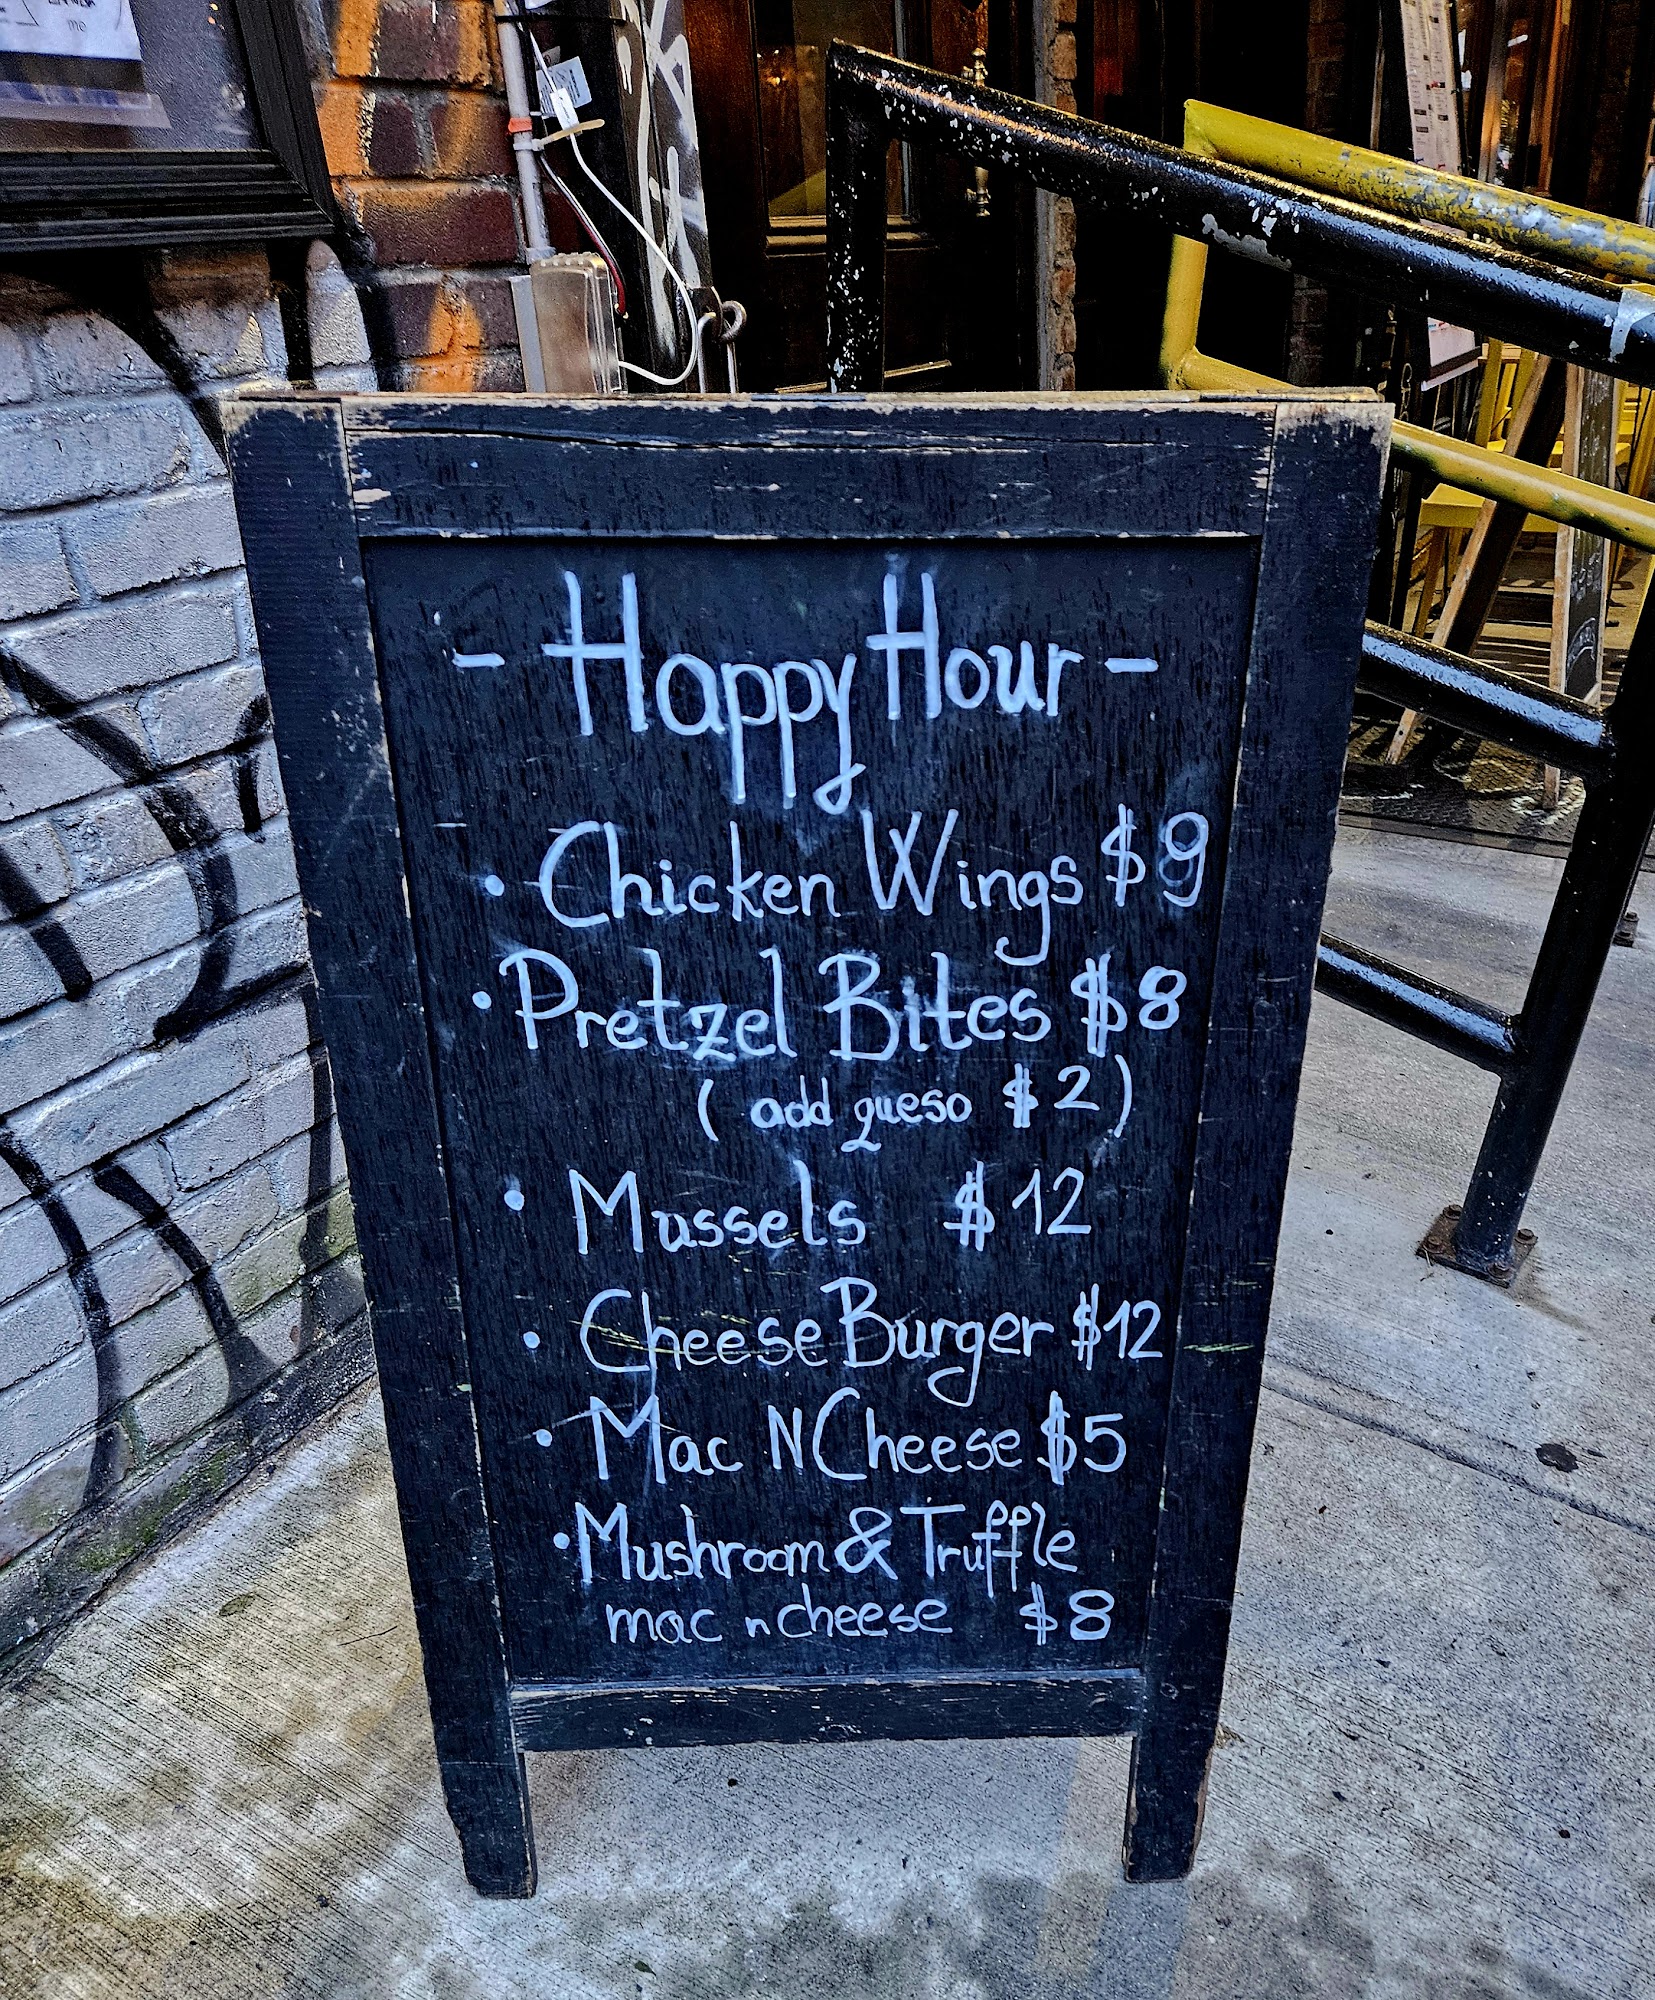 - Happy Hour -
• Chicken Wings $9
• Pretzel Bites $8
( add queso $2)
• Mussels $12
• Cheese Burger $12
• Mac N Cheese $5
• Mushroom & Truffle
mac n cheese $8